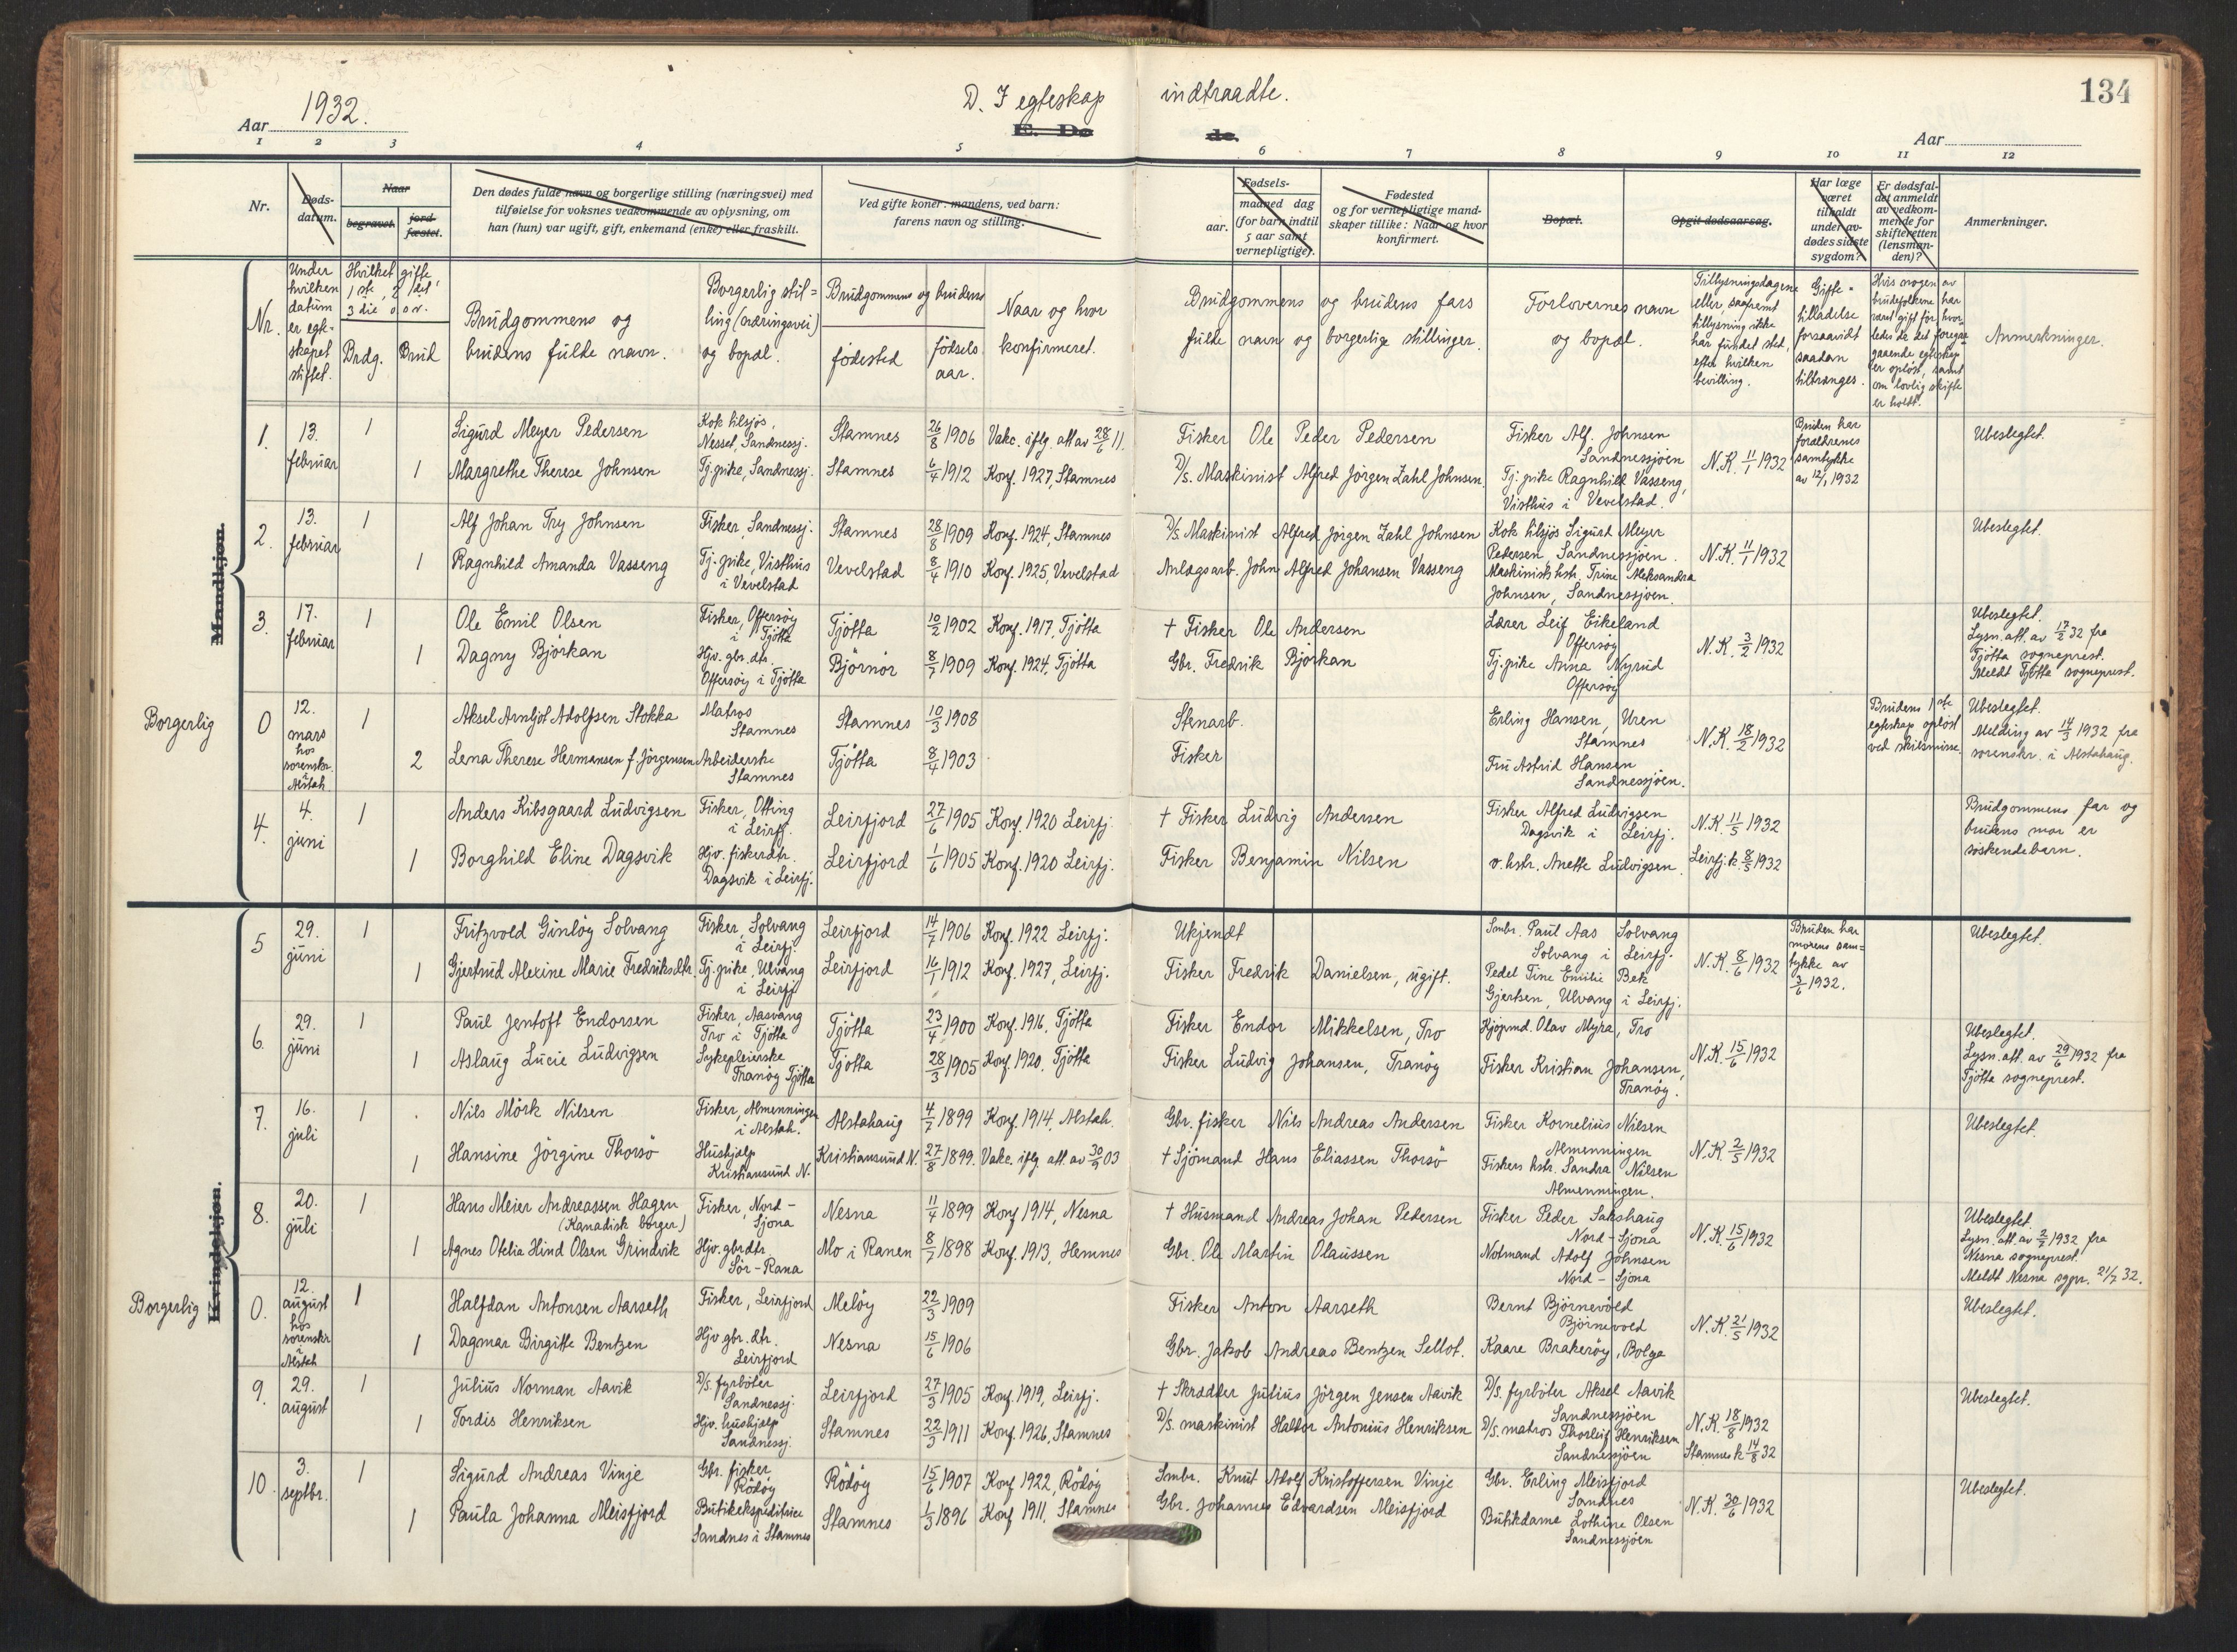 134
Aar 1932.
D. I egteskap indtraadte.
E. Dø de.
Aar
1 2 3 4 5 6 7 8 9 10 11 12
Nr.
Døds-
datum.
Naar
begravet.
jord-
fæstet.
Den dødes fulde navn og borgerlige stilling (næringsvei) med
tilføielse for voksnes vedkommende av oplysning, om
han (hun) var ugift, gift, enkemand (enke) eller fraskilt.
Ved gifte koner: mandens, ved barn:
farens navn og stilling.
Fødsels-
aar.
maaned dag
(for barn indtil
5 aar samt
vernepligtige).
Fødested
og for vernepligtige mand-
skaper tillike: Naar og hvor
konfirmert.
Bopæl.
Opgit dødsaarsag.
Har læge
været
tilkaldt
under av-
dødes sidste
sygdom?
Er dødsfal-
det anmeldt
av vedkom-
mende for
skifteretten
(lensman-
den)?
Anmerkninger.
Nr.
Under
hvilken
datum
er egte-
skapet
stiftet.
Hvilket gifte
1ste, 2det,
3die o.s.v.
Brdg. Brud
Brudgommens og
brudens fulde navn.
Borgerlig stil=
ling (næringsvei)
og bopæl.
Brudgommens og brudens
fødested
fødsels
aar.
Naar og hvor
konfirmeret.
Brudgommens og brudens fars
fulde navn og borgerlige stillinger.
Forlovernes navn
og bopæl.
Tillysningsdagene
eller, saafremt
tillysning ikke
har fundet sted,
efter hvilken
bevilling.
Gifte=
tilladelse
forsaavidt
saadan
tiltrænges.
Hvis nogen av
brudefolkene har
været gift før, hvor-
ledes de det foregaa=
gaaende egteskap
er opløst, samt
om lovlig skifte
er holdt.
Anmerkninger.
Mandkjøn.
1. 13. februar 1 Sigurd Meyer Pedersen Kok tilsjøs, Nesset, Sandnessj. Stamnes 26/8 1906 Vakc. iflg. att av 28/6 11. Fisker Ole Peder Pedersen Fisker Alf. Johnsen Sandnessjöen N.K. 11/1 1932 Bruden har forældrenes samtykke av 12/1 1932 Ubeslegtet.
1 Margrethe Therese Johnsen Tj. pike, Sandnessj. Stamnes 6/4 1912 Konf. 1927, Stamnes D/s. Maskinist Alfred Jörgen Zahl Johnsen. Tj. pike Ragnhild Vasseng, Visthus i Vevelstad.
2. 13. februar 1 Alf Johan Try Johnsen Fisker, Sandnessj. Stamnes 28/8 1909 Konf. 1924, Stamnes D/s. Maskinist Alfred Jörgen Zahl Johnsen Kok tilsjøs Sigurd Meyer Pedersen, Sandnessjöen. N.K. 11/1 1932 Ubeslegtet.
1 Ragnhild Amanda Vasseng Tj. pike, Visthus i Vevelstad Vevelstad 8/4 1910 Konf. 1925, Vevelstad Anlægsarb. John Alfred Johansen Vasseng Maskinists hstr. Trine Aleksandra Johnsen, Sandnessjöen.
3. 17. februar 1 Ole Emil Olsen Fisker, Offersöy i Tjötta Tjötta 10/2 1902 Konf. 1917, Tjötta † Fisker Ole Andersen Lærer Leif Eikeland Offersöy N.K. 3/2 1932 Ubeslegtet. Lysn. att. av 17/2 32 fra Tjötta sogneprest. Meldt Tjötta sogneprest.
1 Dagny Björkan Hjv. gbr. dtr. Offersöy i Tjötta Björnör 8/7 1909 Konf. 1924, Tjötta Gbr. Fredrik Björkan Tj. pike Anna Nyrud Offersöy
Borgerlig 0 12. mars hos sorenskr. i Alstah. 1 Aksel Arnljot Adolfsen Stokka Matros Stamnes Stamnes 10/3 1908 Stenarb. Erling Hansen, Uren Stamnes N.K. 18/2 1932 Brudens 1ste egteskap opløst ved skilsmisse. Ubeslegtet. Melding av 14/3 1932 fra sorenskr. i Alstahaug.
2 Lena Therese Hermansen f. Jörgensen Arbeiderske Stamnes Tjötta 8/4 1903 Fisker Fru Astrid Hansen Sandnessjöen.
4. 4. juni 1 Anders Kibsgaard Ludvigsen Fisker, Olting i Leirfj. Leirfjord 27/6 1905 Konf. 1920 Leirfj. † Fisker Ludvig Andersen Fisker Alfred Ludvigsen Dagsvik i Leirfj. N.K. 11/5 1932 Brudgommens far og brudens mor er søskendebarn.
1 Borghild Eline Dagsvik Hjv. fiskerdtr. Dagsvik i Leirfj. Leirfjord 1/6 1905 Konf. 1920 Leirfj. Fisker Benjamin Nilsen o. hstr. Anette Ludvigsen. Leirfj. k. 8/5 1932
Kvindekjøn.
5 29. juni 1 Fritzvold Ginløy Solvang Fisker, Solvang i Leirfj. Leirfjord 14/7 1906 Konf. 1922 Leirfj. Ukjendt Smbr. Paul Aas Solvang Solvang i Leirfj. N.K. 8/6 1932 Bruden har morens sam=tykke av 3/6 1932. Ubeslegtet.
1 Gjertrud Alexine Marie Fredriksdtr. Tj. pike, Ulvang i Leirfj. Leirfjord 16/1 1912 Konf. 1927, Leirfj. Fisker Fredrik Danielsen, ugift. Pedel Tine Emilie Bek Gjertsen, Ulvang i Leirfj.
6. 29. juni 1 Paul Jentoft Endorsen Fisker, Aasvang Tro i Tjötta Tjötta 23/4 1900 Konf. 1916, Tjötta Fisker Endor Mikkelsen, Tro Kjöpmd. Olav Myra, Tro N.K. 15/6 1932 Ubeslegtet. Lysn. att. av 29/6 1932 fra Tjötta sogneprest.
1 Aslaug Lucie Ludvigsen Sykepleierske Tranöy Tjötta Tjötta 28/3 1905 Konf. 1920, Tjötta Fisker Ludvig Johansen, Tranöy Fisker Kristian Johansen, Tranöy.
7. 16. juli 1 Nils Mörk Nilsen Fisker, Almenningen i Alstah. Alstahaug 4/7 1899 Konf. 1914, Alstah. Gbr. fisker Nils Andreas Andersen Fisker Kornelius Nilsen Almenningen N.K. 2/5 1932 Ubeslegtet.
1 Hansine Jörgine Thorsö Hushjelp Kristiansund N. Kristiansund N. 27/8 1899. Vakc. iflg. att. av 30/9 03 † Sjömand Hans Eliassen Thorsö Fiskers hstr. Sandra Nilsen Almenningen.
8. 20. juli 1 Hans Meier Andreassen Hagen (Kanadisk borger) Fisker, Nord-Sjona Nesna 11/4 1899 Konf 1914, Nesna † Husmand Andreas Johan Pedersen Fisker Peder Sakshaug Nord-Sjona N.K. 15/6 1932 Ubeslegtet. Lysn. att. av 2/7 1932 fra Nesna sogneprest. Meldt Nesna sgpr. 21/7 32.
1 Agnes Otelia Hind Olsen Grindvik Hjv. gbrdtr. Sör-Rana Mo i Ranen 8/7 1898 Konf. 1913, Hemnes Gbr. Ole Martin Olaussen Notmand Adolf Johnsen Nord-Sjona
Borgerlig 0. 12. august hos sorenskr. i Alstah 1 Halfdan Antonsen Aarseth Fisker, Leirfjord Melöy 22/3 1909 Fisker Anton Aarseth Bernt Björnevold Björnevold N.K. 21/5 1932 Ubeslegtet.
1 Dagmar Birgitte Bentzen Hjv. gbr. dtr. Leirfjord Nesna 15/6 1906 Gbr. Jakob Andreas Bentzen Sellot. Kaare Brakeröy, Bolga
9. 29. august 1 Julius Norman Aavik D/s. fyrböter Sandnessj. Leirfjord 27/3 1905 Konf. 1919, Leirfj. † Skrædder Julius Jörgen Jensen Aavik D/s. fyrböter Aksel Aavik Sandnessjöen N.K. 18/8 1932 Ubeslegtet.
1 Tordis Henriksen Hjv. hushjelp Sandnessj. Stamnes 22/3 1911 Konf. 1926, Stamnes D/s. maskinist Haldor Antonius Henriksen D/s. matros Thorleif Henriksen Sandnessjöen Stamnes k 14/8 32
10. 3. septbr. 1 Sigurd Andreas Vinje Gbr. fisker Rödöy Rödöy 15/6 1907 Konf. 1922, Rödöy Smbr. Knut Adolf Kristoffersen Vinje Gbr. Erling Meisfjord Sandnes N.K. 30/6 1932 Ubeslegtet.
1 Paula Johanna Meisfjord Butikekspeditrice Sandnes i Stamnes Stamnes 1/3 1896 Konf 1911, Stamnes Gbr. Johannes Edvardsen Meisfjord Butikdame Lothine Olsen Sandnessjöen